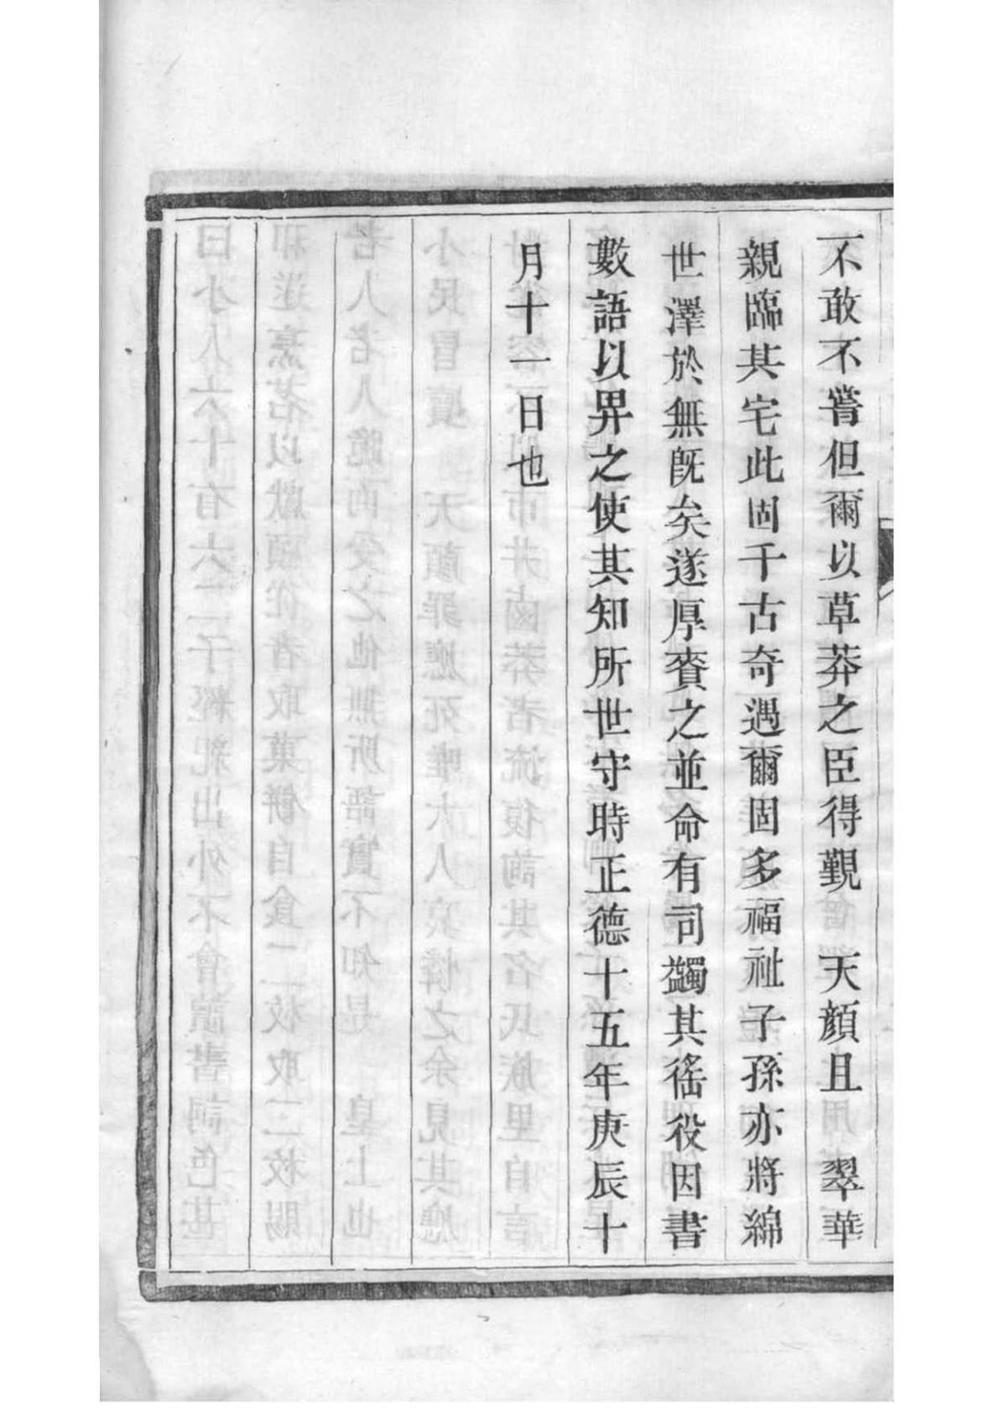 不敢不嘗但爾以草莽之臣得覲　天顔且　翠華
親臨其宅此固千古奇遇爾固多福祉子孫亦將綿
世澤於無旣矣遂厚賚之並命有司蠲其徭役因書
數語以畀之使其知所世守時正德十五年庚辰十
月十一日也